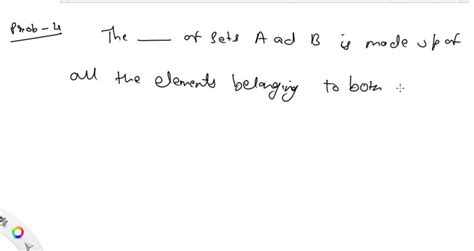 Prob-4
The ___ of sets A ad B is made up of
all the elements belonging to both